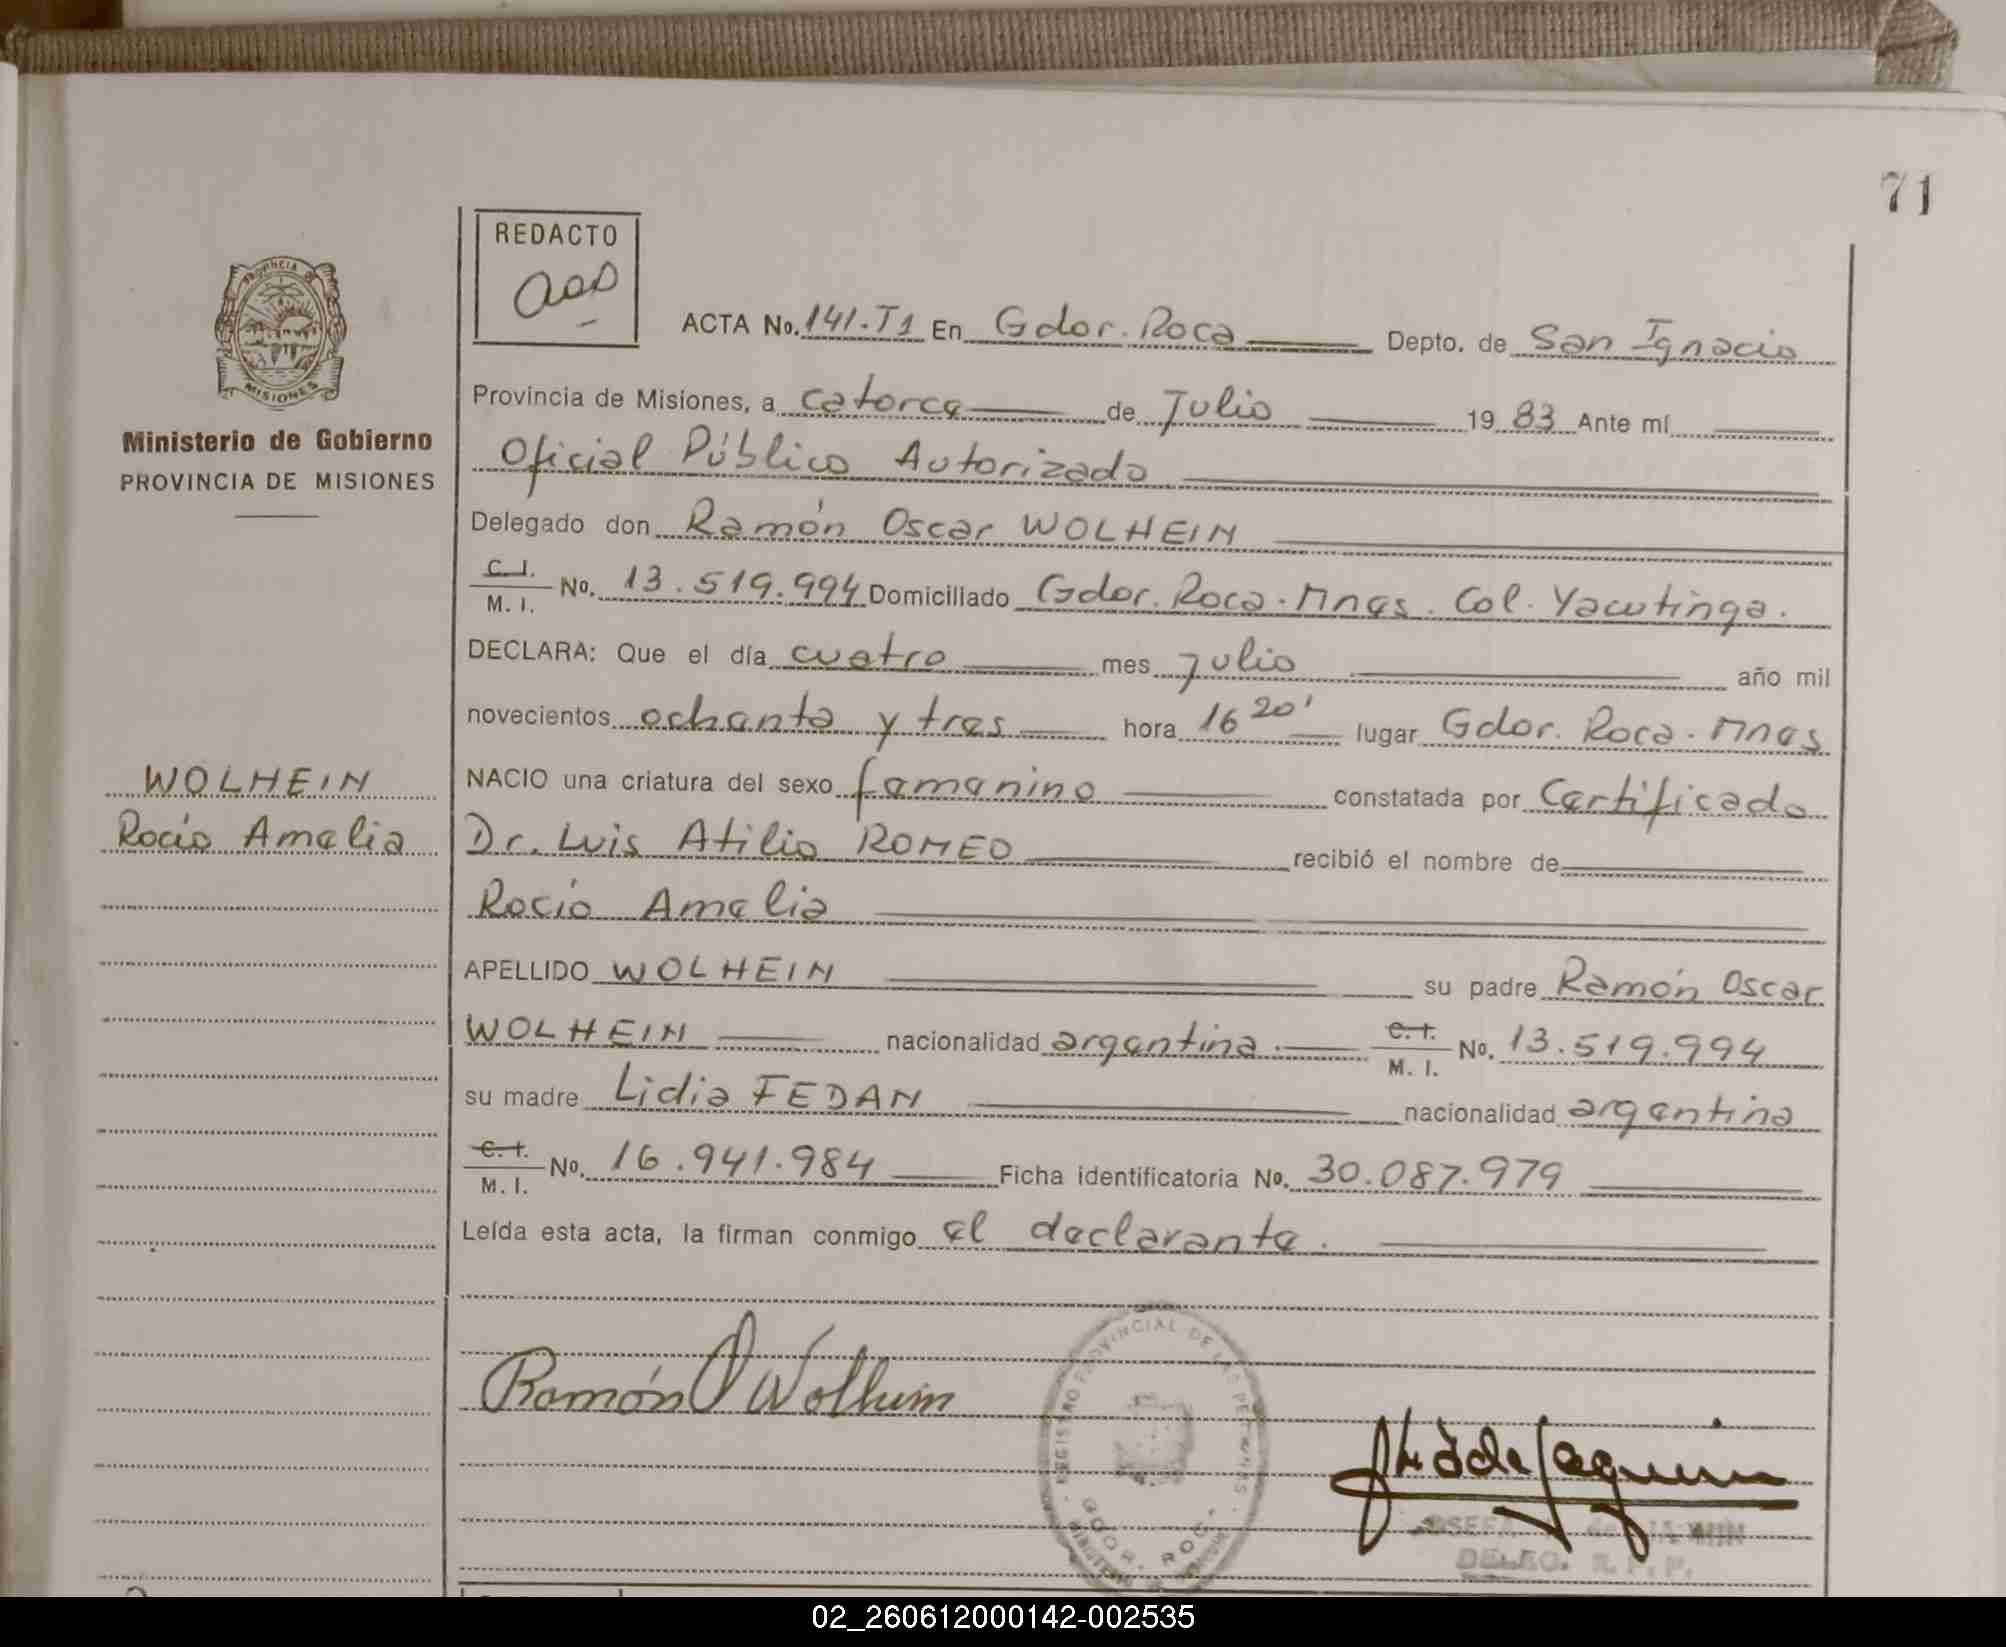 71
REDACTO
ACTA No. 141.T1 En Gdor. Roca Depto. de San Ignacio
Provincia de Misiones, a catorce de Julio 19 83 Ante mí
Oficial Público Autorizado
Delegado don Ramón Oscar WOLHEIN
C. I.
M. I. No. 13.519.994 Domiciliado Gdor. Roca. Mnes. Col. Yacutinga.
DECLARA: Que el día cuatro mes julio año mil
novecientos ochenta y tres hora 16 20' lugar Gdor. Roca. Mnes
NACIO una criatura del sexo femenino constatada por Certificado
Dr. Luis Atilio ROMEO recibió el nombre de
Rocío Amelia
APELLIDO WOLHEIN su padre Ramón Oscar
WOLHEIN nacionalidad argentina. C. I.
M. I. No. 13.519.994
su madre Lidia FEDAN nacionalidad argentina
C. I.
M. I. No. 16.941.984 Ficha identificatoria No. 30.087.979
Leída esta acta, la firman conmigo el declarante.
Ramón O Wolhein
REGISTRO PROVINCIAL DE LAS PERSONAS
GDOR. ROCA
DELEG. R. P. P.
PROVINCIA DE
MISIONES
Ministerio de Gobierno
PROVINCIA DE MISIONES
WOLHEIN
Rocío Amelia
02_260612000142-002535